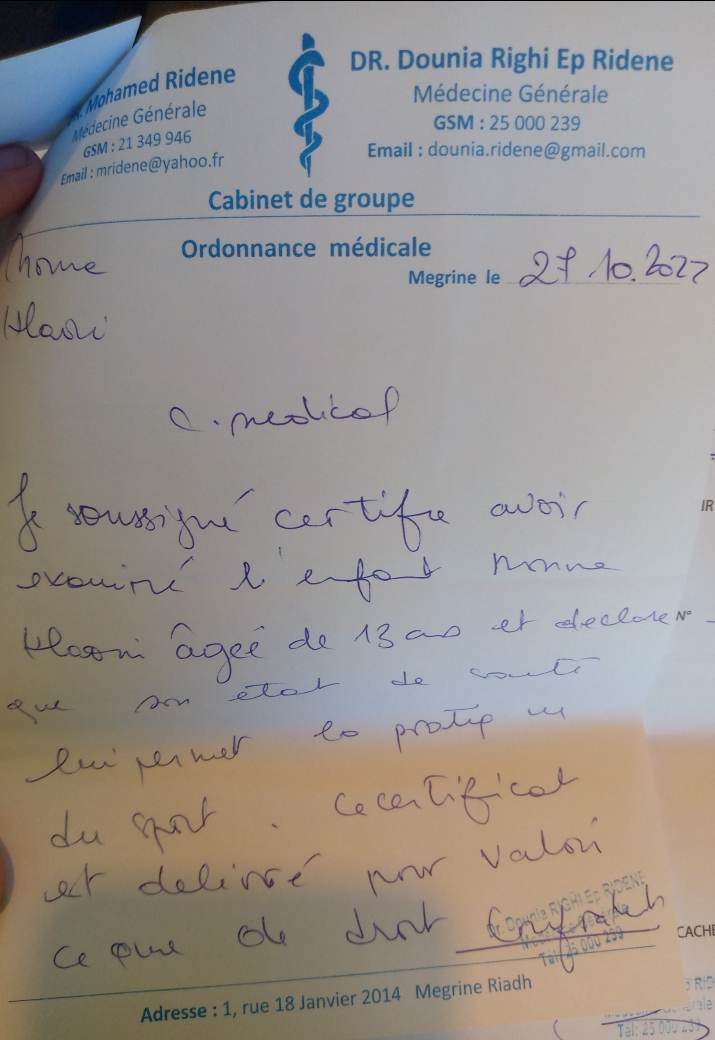 Mohamed Ridene
Médecine Générale
GSM : 21 349 946
Email : mridene@yahoo.fr
DR. Dounia Righi Ep Ridene
Médecine Générale
GSM : 25 000 239
Email : dounia.ridene@gmail.com
Cabinet de groupe
Ordonnance médicale
Megrine le 27.10.2022
C. medical
Je soussigné certifie avoir
examiné l'enfant
âgée de 13 ans et declare
que son état de santé
lui permet la pratique
du sport. Ce certificat
est delivré pour valoir
ce que de droit
Dr. Dounia RIGHI Ep RIDENE
Médecine Générale
Tél: 25 000 239
Adresse : 1, rue 18 Janvier 2014 Megrine Riadh
IR
N°
CACHE
Tél: 25 000 239